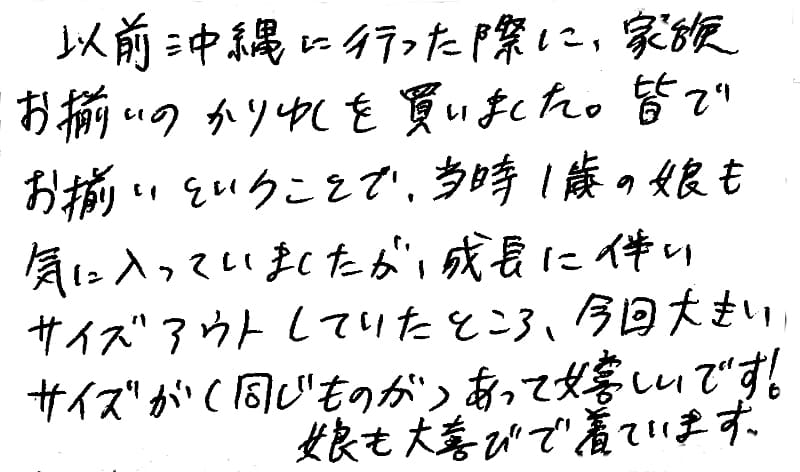 以前沖縄に行った際に、家族
お揃いのかりゆしを買いました。皆で
お揃いということで、当時1歳の娘も
気に入っていましたが、成長に伴い
サイズアウトしていたところ、今回大きい
サイズが(同じものが)あって嬉しいです!
娘も大喜びで着ています。